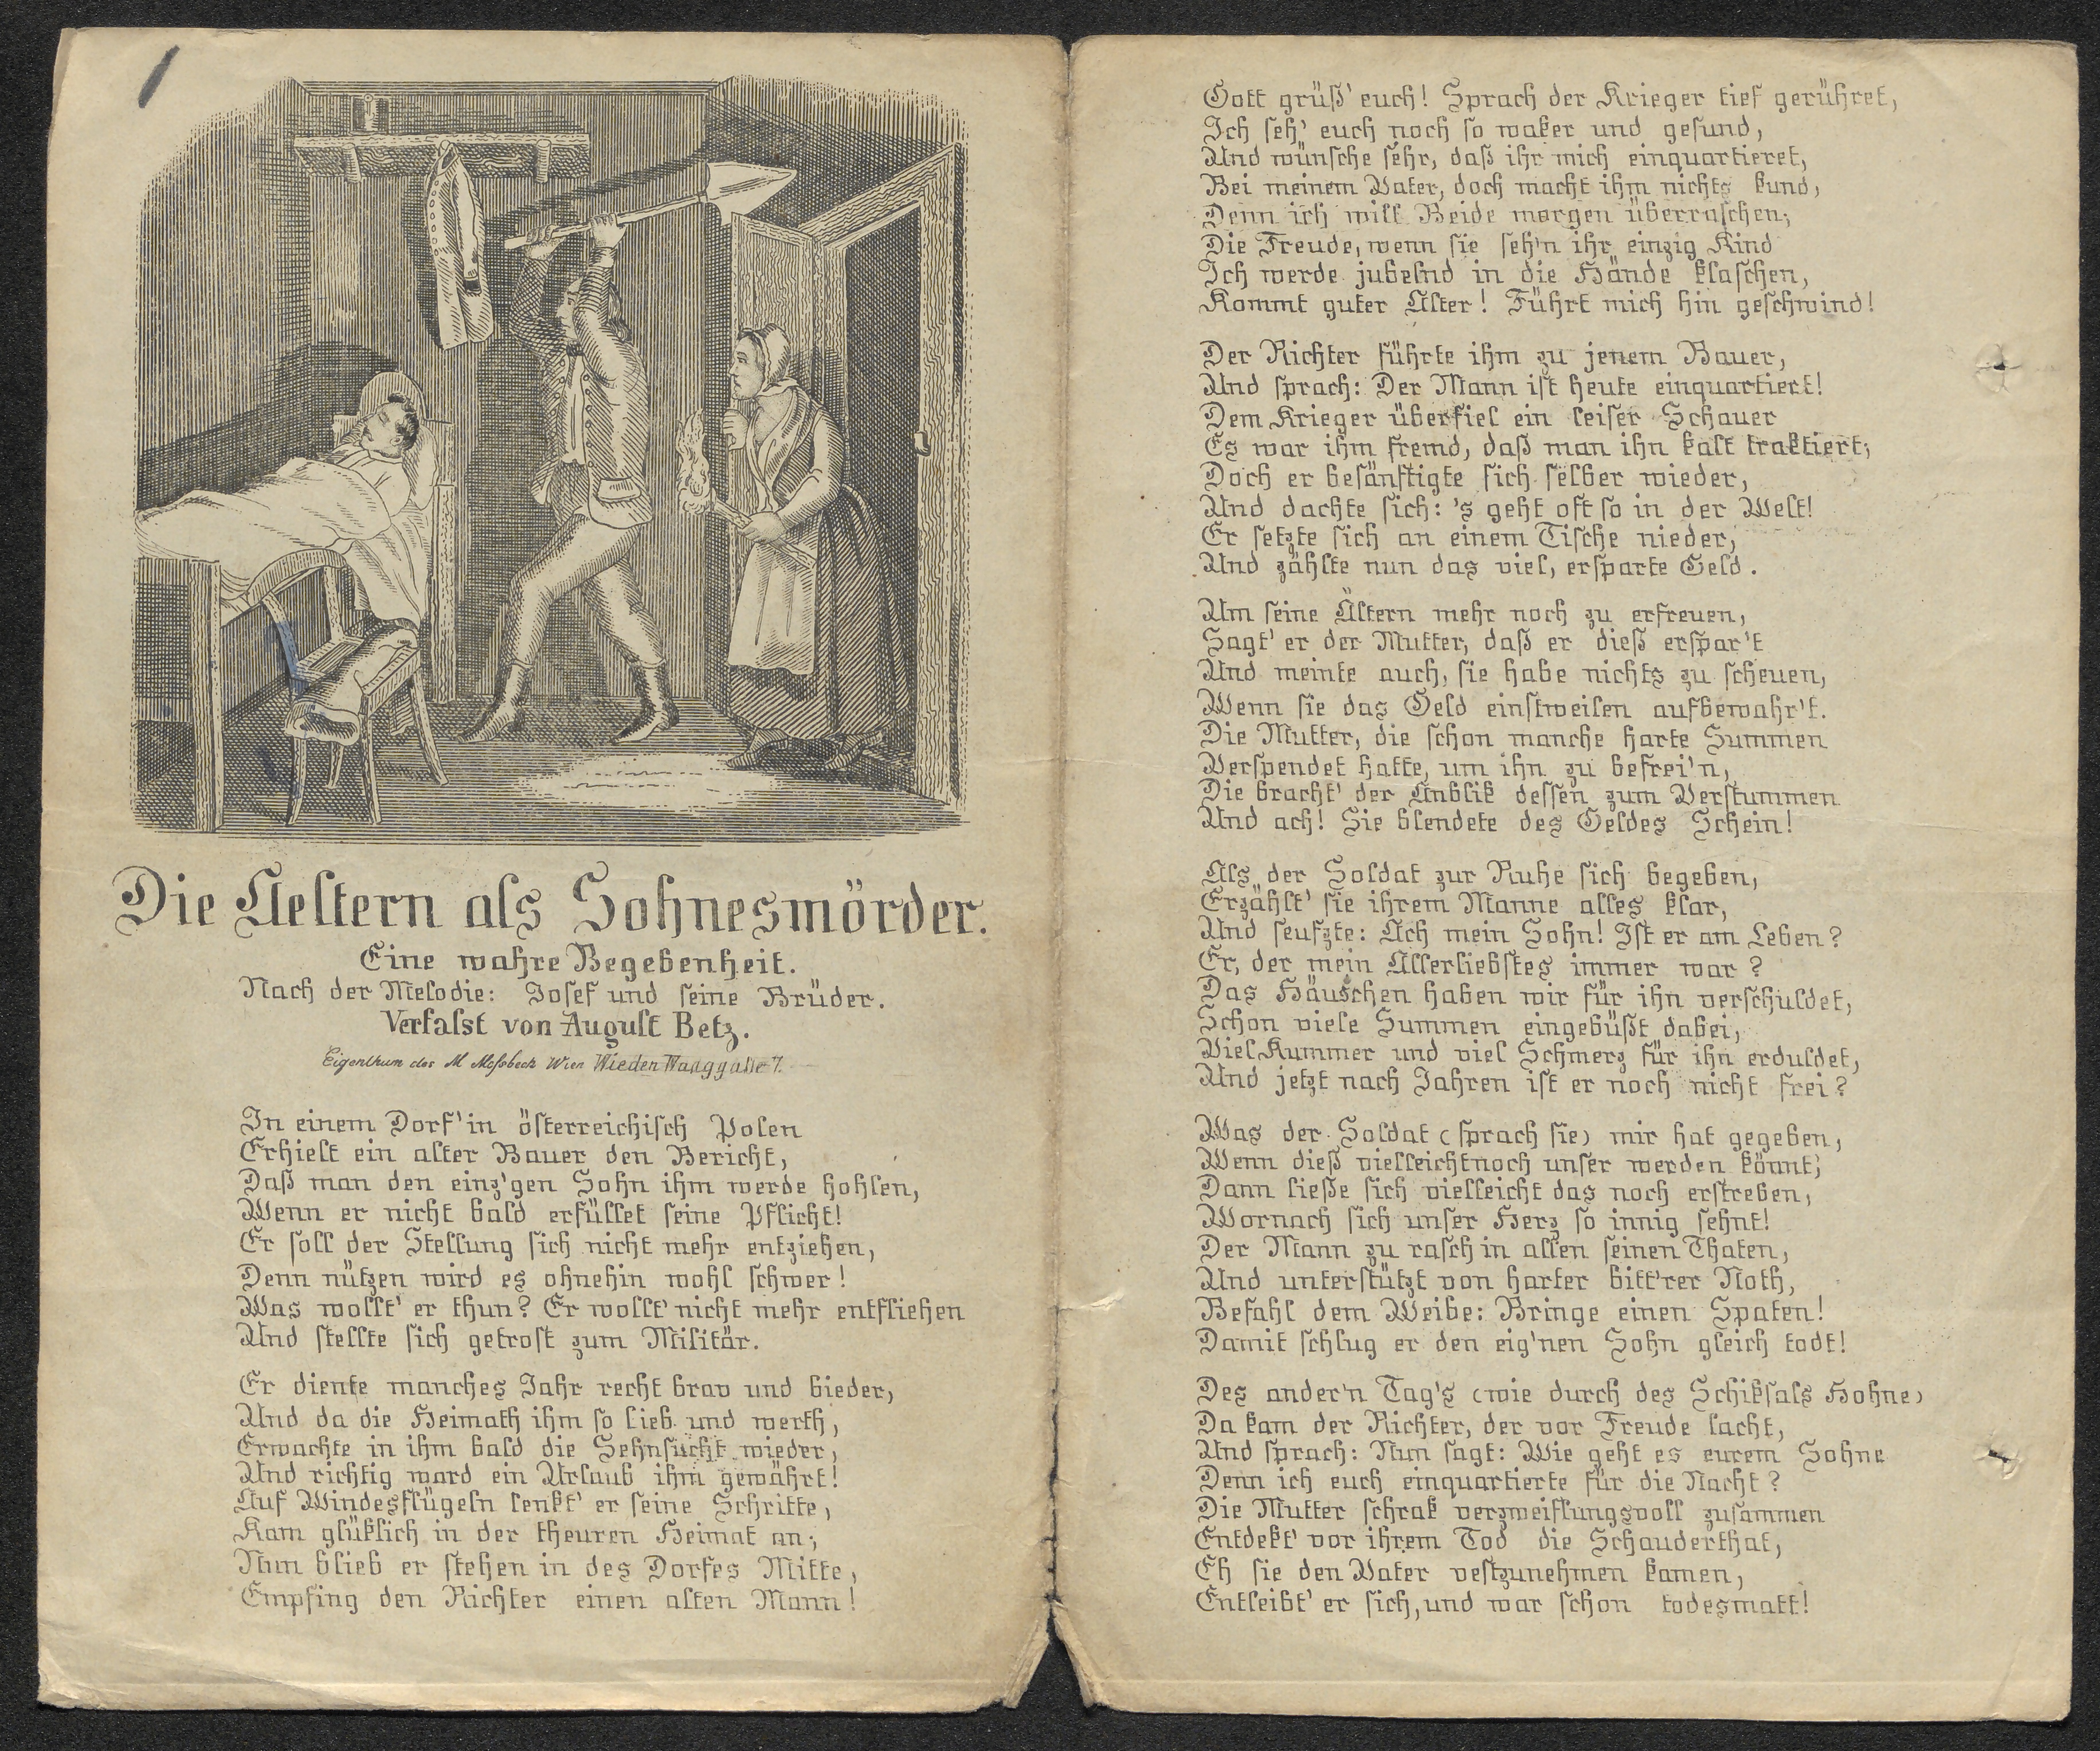 Die Aeltern als Sohnesmörder.
Eine wahre Begebenheit.
Nach der Melodie: Josef und seine Brüder.
Verfasst von August Betz.
Eigenthum des M Mossbeck Wien Wieden Waaggasse 7.
In einem Dorf' in österreichisch Polen
Erhielt ein alter Bauer den Bericht,
Daß man den einz'gen Sohn ihm werde hohlen,
Wenn er nicht bald erfüllet seine Pflicht!
Er soll der Stellung sich nicht mehr entziehen,
Denn nützen wird es ohnehin wohl schwer!
Was wollt' er thun? Er wollt' nicht mehr entfliehen
Und stellte sich getrost zum Militär.
Er diente manches Jahr recht brav und bieder,
Und da die Heimath ihm so lieb und werth,
Erwachte in ihm bald die Sehnsucht wieder,
Und richtig ward ein Urlaub ihm gewährt!
Auf Windesflügeln lenkt' er seine Schritte,
Kam glüklich in der theuren Heimat an;
Nun blieb er stehen in des Dorfes Mitte,
Empfing den Richter einen alten Mann!
Gott grüß' euch! Sprach der Krieger tief gerühret,
Ich seh' euch noch so waker und gesund,
Und wünsche sehr, daß ihr mich einquartieret,
Bei meinem Vater, doch macht ihm nichts kund,
Denn ich will Beide morgen überraschen;
Die Freude, wenn sie seh'n ihr einzig Kind
Ich werde jubelnd in die Hände klaschen,
Kommt guter Alter! Führt mich hin geschwind!
Der Richter führte ihm zu jenem Bauer,
Und sprach: Der Mann ist heute einquartiert!
Dem Krieger überfiel ein leiser Schauer
Es war ihm fremd, daß man ihn kalt traktiert;
Doch er besänftigte sich selber wieder,
Und dachte sich: 's geht oft so in der Welt!
Er setzte sich an einem Tische nieder,
Und zählte nun das viel, ersparte Geld.
Um seine Ältern mehr noch zu erfreuen,
Sagt' er der Mutter, daß er dieß erspar't
Und meinte auch, sie habe nichts zu scheuen,
Wenn sie das Geld einstweilen aufbewahr't.
Die Mutter, die schon manche harte Summen
Verspendet hatte, um ihn zu befrei'n,
Die bracht' der Anblik dessen zum Verstummen
Und ach! Sie blendete des Geldes Schein!
Als der Soldat zur Ruhe sich begeben,
Erzählt' sie ihrem Manne alles klar,
Und seufzte: Ach mein Sohn! Ist er am Leben?
Er, der mein Allerliebstes immer war?
Das Häuschen haben wir für ihn verschuldet,
Schon viele Summen eingebüßt dabei,
Viel Kummer und viel Schmerz für ihn erduldet,
Und jetzt nach Jahren ist er noch nicht frei?
Was der Soldat (sprach sie) mir hat gegeben,
Wenn dieß vielleicht noch unser werden könnt;
Dann ließe sich vielleicht das noch erstreben,
Wornach sich unser Herz so innig sehnt!
Der Mann zu rasch in allen seinen Thaten,
Und unterstützt von harter bitt'rer Noth,
Befahl dem Weibe: Bringe einen Spaten!
Damit schlug er den eig'nen Sohn gleich todt!
Des ander'n Tag's (wie durch des Schiksals Hohne)
Da kam der Richter, der vor Freude lacht,
Und sprach: Nun sagt: Wie geht es eurem Sohne
Denn ich euch einquartierte für die Nacht?
Die Mutter schrak verzweiflungsvoll zusammen
Entdekt' vor ihrem Tod die Schauderthat,
Eh sie den Vater vestzunehmen kamen,
Entleibt' er sich, und war schon todesmatt!